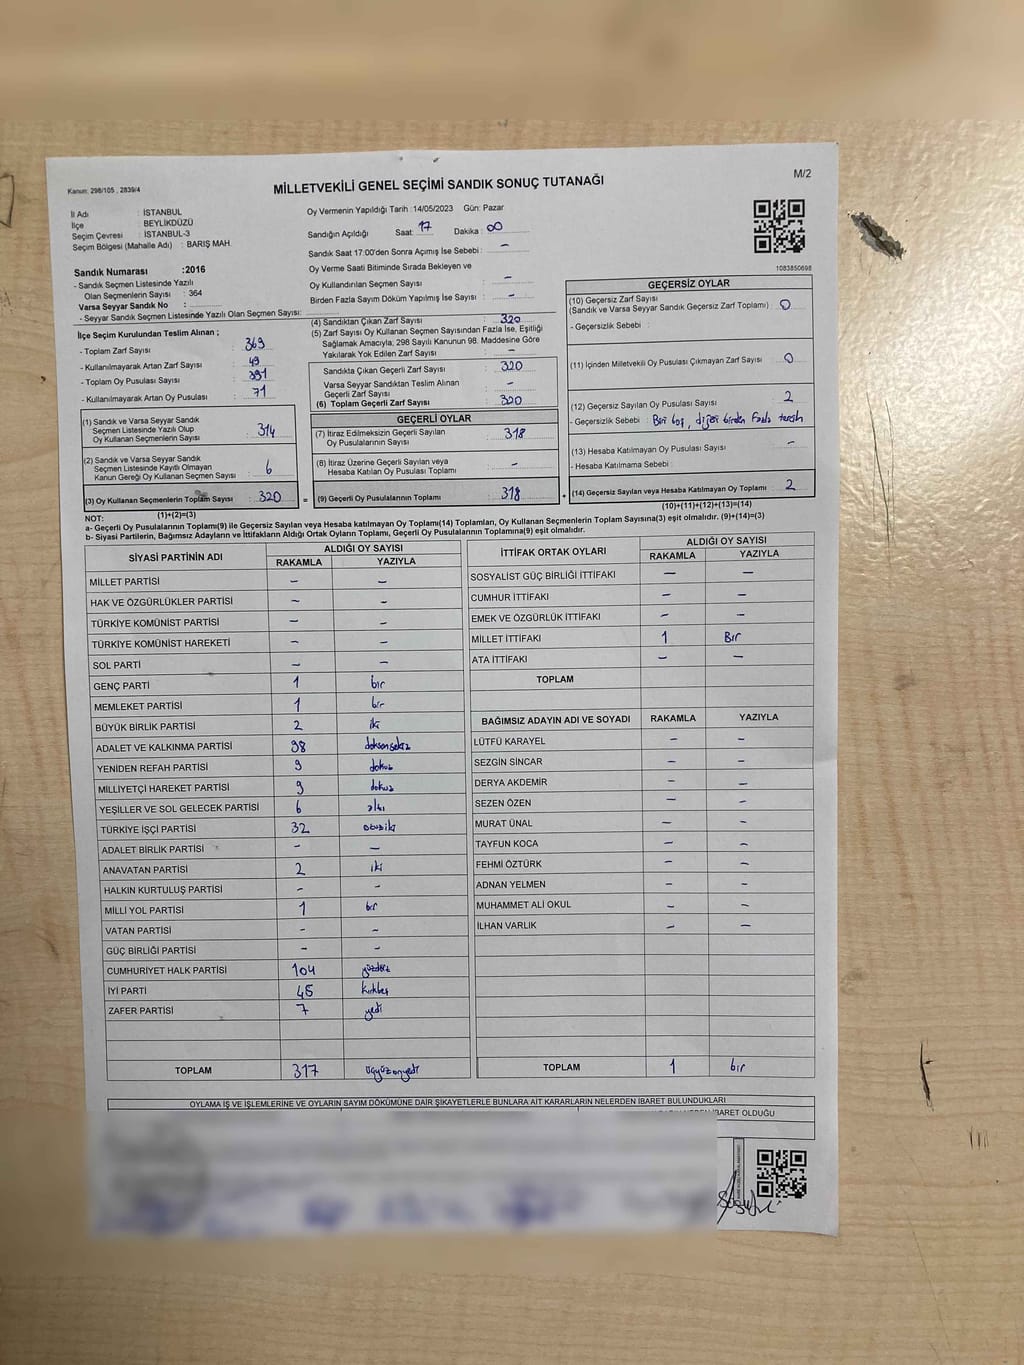 Kanun: 298/105 , 2839/4
MİLLETVEKİLİ GENEL SEÇİMİ SANDIK SONUÇ TUTANAĞI
M/2
İl Adı : İSTANBUL
İlçe : BEYLİKDÜZÜ
Seçim Çevresi : İSTANBUL-3
Seçim Bölgesi (Mahalle Adı) : BARIŞ MAH.
Sandık Numarası :2016
- Sandık Seçmen Listesinde Yazılı
Olan Seçmenlerin Sayısı : 364
Varsa Seyyar Sandık No :
- Seyyar Sandık Seçmen Listesinde Yazılı Olan Seçmen Sayısı:
Oy Vermenin Yapıldığı Tarih :14/05/2023 Gün: Pazar
Sandığın Açıldığı Saat: 17 Dakika: 00
Sandık Saat 17:00'den Sonra Açımış İse Sebebi : -
Oy Verme Saati Bitiminde Sırada Bekleyen ve
Oy Kullandırılan Seçmen Sayısı : -
Birden Fazla Sayım Döküm Yapılmış İse Sayısı : -
1083850698
İlçe Seçim Kurulundan Teslim Alınan ;
- Toplam Zarf Sayısı : 369
- Kullanılmayarak Artan Zarf Sayısı : 49
- Toplam Oy Pusulası Sayısı : 391
- Kullanılmayarak Artan Oy Pusulası : 71
(1) Sandık ve Varsa Seyyar Sandık
Seçmen Listesinde Yazılı Olup
Oy Kullanan Seçmenlerin Sayısı : 314
(2) Sandık ve Varsa Seyyar Sandık
Seçmen Listesinde Kayıtlı Olmayan
Kanun Gereği Oy Kullanan Seçmen Sayısı : 6
(3) Oy Kullanan Seçmenlerin Toplam Sayısı : 320
(1)+(2)=(3)
(4) Sandıktan Çıkan Zarf Sayısı : 320
(5) Zarf Sayısı Oy Kullanan Seçmen Sayısından Fazla İse, Eşitliği
Sağlamak Amacıyla, 298 Sayılı Kanunun 98. Maddesine Göre
Yakılarak Yok Edilen Zarf Sayısı : -
Sandıkta Çıkan Geçerli Zarf Sayısı : 320
Varsa Seyyar Sandıktan Teslim Alınan
Geçerli Zarf Sayısı : -
(6) Toplam Geçerli Zarf Sayısı : 320
GEÇERLİ OYLAR
(7) İtiraz Edilmeksizin Geçerli Sayılan
Oy Pusulalarının Sayısı : 318
(8) İtiraz Üzerine Geçerli Sayılan veya
Hesaba Katılan Oy Pusulası Toplamı : -
= (9) Geçerli Oy Pusulalarının Toplamı : 318
GEÇERSİZ OYLAR
(10) Geçersiz Zarf Sayısı
(Sandık ve Varsa Seyyar Sandık Geçersiz Zarf Toplamı) : 0
- Geçersizlik Sebebi :
(11) İçinden Milletvekili Oy Pusulası Çıkmayan Zarf Sayısı : 0
(12) Geçersiz Sayılan Oy Pusulası Sayısı : 2
- Geçersizlik Sebebi : Biri boş, diğeri birden fazla tercih
(13) Hesaba Katılmayan Oy Pusulası Sayısı : -
- Hesaba Katılmama Sebebi :
+ (14) Geçersiz Sayılan veya Hesaba Katılmayan Oy Toplamı : 2
(10)+(11)+(12)+(13)=(14)
NOT:
a- Geçerli Oy Pusulalarının Toplamı(9) ile Geçersiz Sayılan veya Hesaba katılmayan Oy Toplamı(14) Toplamları, Oy Kullanan Seçmenlerin Toplam Sayısına(3) eşit olmalıdır. (9)+(14)=(3)
b- Siyasi Partilerin, Bağımsız Adayların ve İttifakların Aldığı Ortak Oyların Toplamı, Geçerli Oy Pusulalarının Toplamına(9) eşit olmalıdır.
SİYASİ PARTİNİN ADI ALDIĞI OY SAYISI
RAKAMLA YAZIYLA
MİLLET PARTİSİ - -
HAK VE ÖZGÜRLÜKLER PARTİSİ - -
TÜRKİYE KOMÜNİST PARTİSİ - -
TÜRKİYE KOMÜNİST HAREKETİ - -
SOL PARTİ - -
GENÇ PARTİ 1 bir
MEMLEKET PARTİSİ 1 bir
BÜYÜK BİRLİK PARTİSİ 2 iki
ADALET VE KALKINMA PARTİSİ 98 doksansekiz
YENİDEN REFAH PARTİSİ 9 dokuz
MİLLİYETÇİ HAREKET PARTİSİ 9 dokuz
YEŞİLLER VE SOL GELECEK PARTİSİ 6 altı
TÜRKİYE İŞÇİ PARTİSİ 32 otuziki
ADALET BİRLİK PARTİSİ - -
ANAVATAN PARTİSİ 2 iki
HALKIN KURTULUŞ PARTİSİ - -
MİLLİ YOL PARTİSİ 1 bir
VATAN PARTİSİ - -
GÜÇ BİRLİĞİ PARTİSİ - -
CUMHURİYET HALK PARTİSİ 104 yüzdört
İYİ PARTİ 45 kırkbeş
ZAFER PARTİSİ 7 yedi
TOPLAM 317 üçyüzonyedi
İTTİFAK ORTAK OYLARI ALDIĞI OY SAYISI
RAKAMLA YAZIYLA
SOSYALİST GÜÇ BİRLİĞİ İTTİFAKI - -
CUMHUR İTTİFAKI - -
EMEK VE ÖZGÜRLÜK İTTİFAKI - -
MİLLET İTTİFAKI 1 Bir
ATA İTTİFAKI - -
TOPLAM
BAĞIMSIZ ADAYIN ADI VE SOYADI RAKAMLA YAZIYLA
LÜTFÜ KARAYEL - -
SEZGİN SİNCAR - -
DERYA AKDEMİR - -
SEZEN ÖZEN - -
MURAT ÜNAL - -
TAYFUN KOCA - -
FEHMİ ÖZTÜRK - -
ADNAN YELMEN - -
MUHAMMET ALİ OKUL - -
İLHAN VARLIK - -
TOPLAM 1 bir
OYLAMA İŞ VE İŞLEMLERİNE VE OYLARIN SAYIM DÖKÜMÜNE DAİR ŞİKAYETLERLE BUNLARA AİT KARARLARIN NELERDEN İBARET BULUNDUKLARI
İBARET OLDUĞU